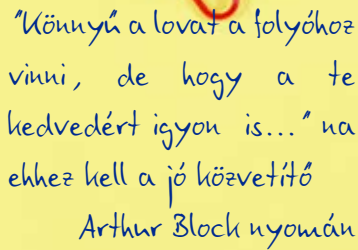 "Könnyű a lovat a folyóhoz
vinni, de hogy a te
kedvedért igyon is..." na
ehhez kell a jó közvetítő
Arthur Block nyomán